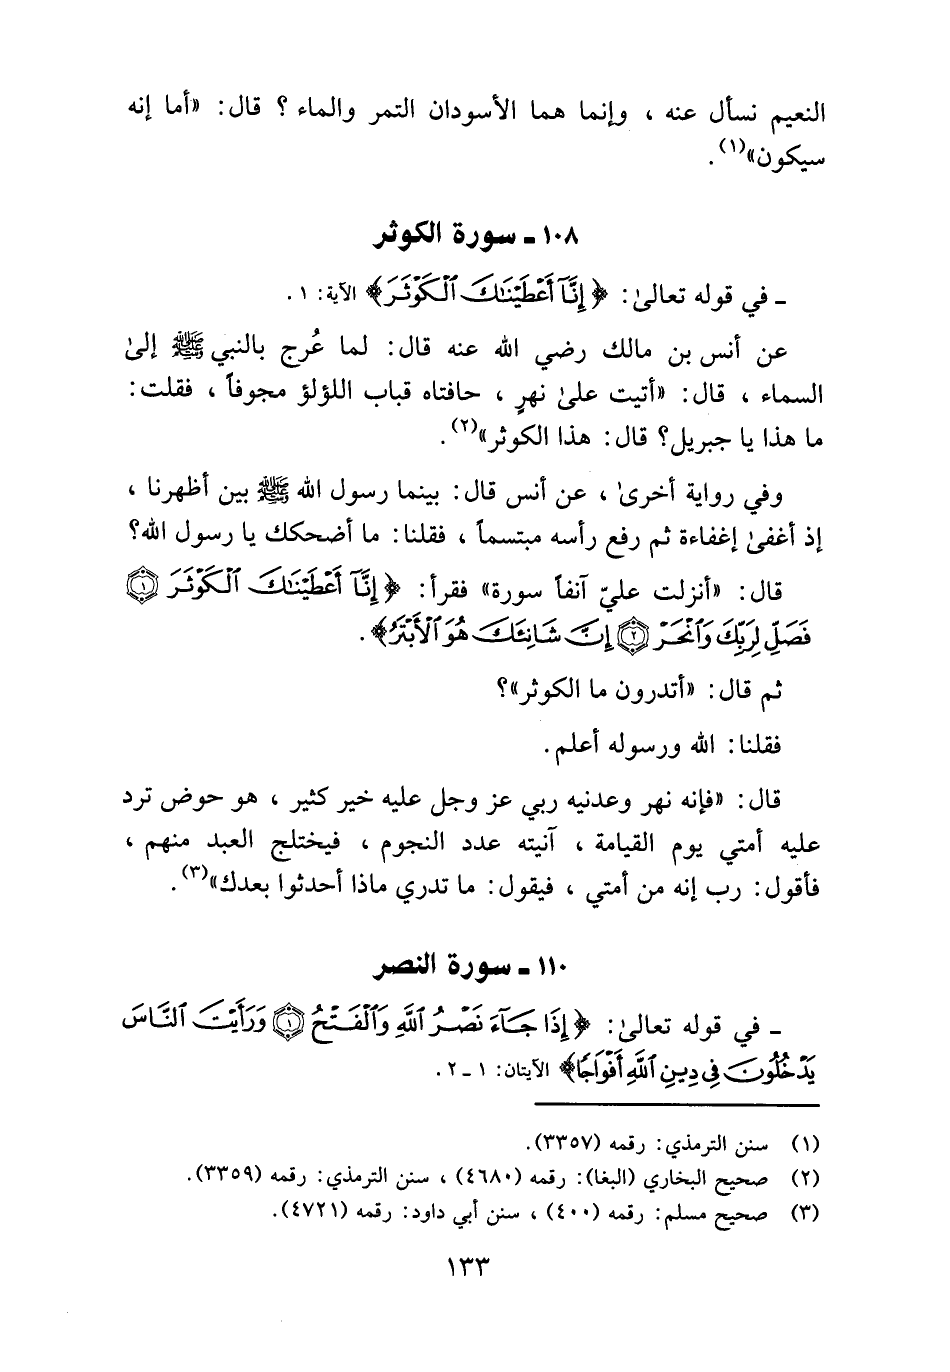 النعيم نسأل عنه ، وإنما هما الأسودان التمر والماء ؟ قال: «أما إنه
سيكون»(١).
١٠٨ ـ سورة الكوثر
ـ في قوله تعالىٰ: ﴿إِنَّآ أَعْطَيْنَٰكَ ٱلْكَوْثَرَ﴾ الآية: ١ .
عن أنس بن مالك رضي الله عنه قال: لما عُرج بالنبي ﷺ إلىٰ
السماء ، قال: «أتيت علىٰ نهرٍ ، حافتاه قباب اللؤلؤ مجوفاً ، فقلت:
ما هذا يا جبريل؟ قال: هذا الكوثر»(٢).
وفي رواية أخرىٰ ، عن أنس قال: بينما رسول الله ﷺ بين أظهرنا ،
إذ أغفىٰ إغفاءة ثم رفع رأسه مبتسماً ، فقلنا: ما أضحكك يا رسول الله؟
قال: «أنزلت عليّ آنفاً سورة» فقرأ: ﴿إِنَّآ أَعْطَيْنَٰكَ ٱلْكَوْثَرَ ۝١
فَصَلِّ لِرَبِّكَ وَٱنْحَرْ ۝٢ إِنَّ شَانِئَكَ هُوَ ٱلْأَبْتَرُ﴾.
ثم قال: «أتدرون ما الكوثر»؟
فقلنا: الله ورسوله أعلم.
قال: «فإنه نهر وعدنيه ربي عز وجل عليه خير كثير ، هو حوض ترد
عليه أمتي يوم القيامة ، آنيته عدد النجوم ، فيختلج العبد منهم ،
فأقول: رب إنه من أمتي ، فيقول: ما تدري ماذا أحدثوا بعدك»(٣).
١١٠ ـ سورة النصر
ـ في قوله تعالىٰ: ﴿إِذَا جَآءَ نَصْرُ ٱللَّهِ وَٱلْفَتْحُ ۝١ وَرَأَيْتَ ٱلنَّاسَ
يَدْخُلُونَ فِى دِينِ ٱللَّهِ أَفْوَاجًا﴾ الآيتان: ١ ـ ٢ .
(١) سنن الترمذي: رقمه (٣٣٥٧).
(٢) صحيح البخاري (البغا): رقمه (٤٦٨٠) ، سنن الترمذي: رقمه (٣٣٥٩).
(٣) صحيح مسلم: رقمه (٤٠٠) ، سنن أبي داود: رقمه (٤٧٢١).
١٣٣